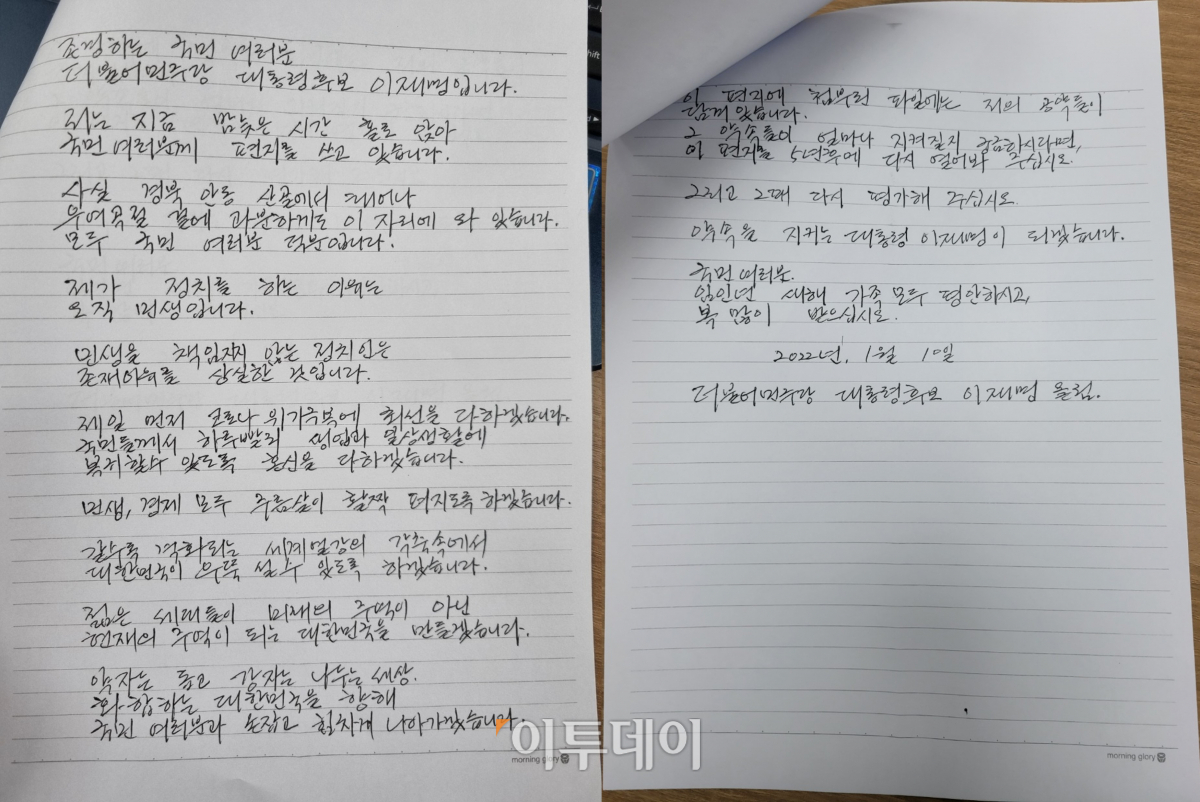 존경하는 국민 여러분
더불어민주당 대통령후보 이재명입니다.
저는 지금 밤늦은 시간 홀로 앉아
국민여러분께 편지를 쓰고 있습니다.
사실 경북 안동 산골에서 태어나
우여곡절 끝에 과분하게도 이 자리에 와 있습니다.
모두 국민 여러분 덕분입니다.
제가 정치를 하는 이유는
오직 민생입니다.
민생을 책임지지 않는 정치인은
존재이유를 상실한 것입니다.
제일 먼저 코로나 위기극복에 최선을 다하겠습니다.
국민들께서 하루빨리 생업과 일상생활에
복귀할수 있도록 혼신을 다하겠습니다.
민생, 경제 모두 주름살이 활짝 펴지도록 하겠습니다.
갈수록 격화되는 세계열강의 각축속에서
대한민국이 우뚝 설 수 있도록 하겠습니다.
젊은 세대들이 미래의 주역이 아닌
현재의 주역이 되는 대한민국을 만들겠습니다.
약자는 돕고 강자는 나누는 세상.
화합하는 대한민국을 향해
국민 여러분과 손잡고 힘차게 나아가겠습니다.
morning glory
이 편지에 첨부된 파일에는 저의 공약들이
담겨 있습니다.
그 약속들이 얼마나 지켜질지 궁금하시라면,
이 편지를 5년후에 다시 열어봐 주십시오.
그리고 그때 다시 평가해 주십시오.
약속을 지키는 대통령 이재명이 되겠습니다.
국민여러분.
임인년 새해 가족 모두 평안하시고,
복 많이 받으십시오.
2022년. 1월 10일
더불어민주당 대통령후보 이재명 올림.
morning glory
이투데이